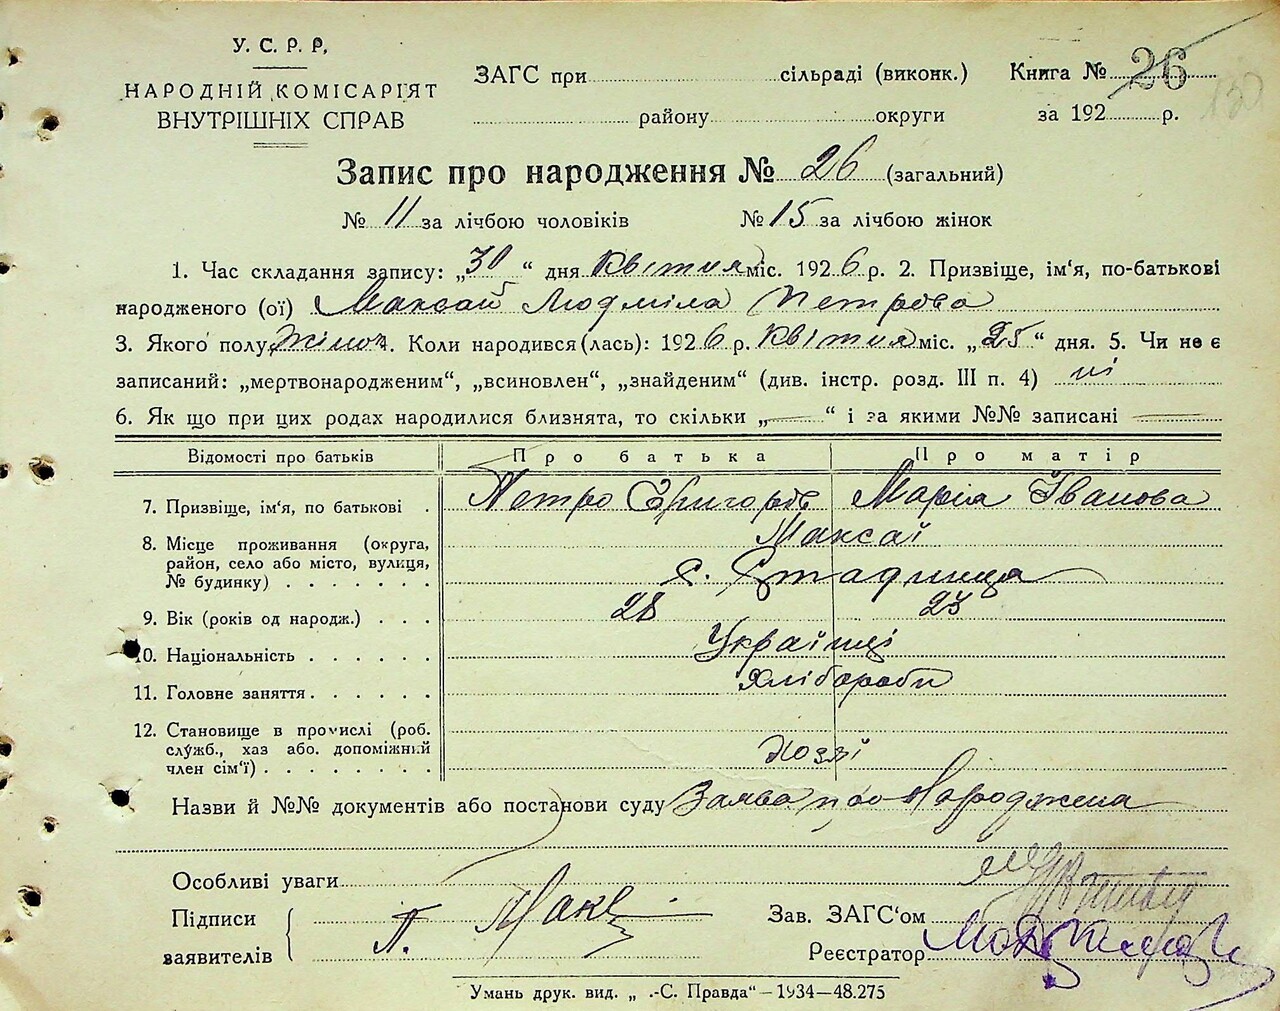 У. С. Р. Р.
НАРОДНІЙ КОМІСАРІЯТ
ВНУТРІШНІХ СПРАВ
ЗАГС при сільраді (виконк.) Книга № 26
району округи за 192 р.
130
Запис про народження № 26 (загальний)
№ 11 за лічбою чоловіків № 15 за лічбою жінок
1. Час складання запису: „30“ дня Квітня міс. 1926 р. 2. Призвіще, ім'я, по-батькові
народженого (ої) Максай Людміла Петрова
3. Якого полу Жіноч. Коли народився (лась): 1926 р. Квітня міс. „25“ дня. 5. Чи не є
записаний: „мертвонародженим“, „всиновлен“, „знайденим“ (див. інстр. розд. III п. 4) ні
6. Як що при цих родах народилися близнята, то скільки „—“ і за якими №№ записані —
Відомості про батьків Про батька Про матір
7. Призвіще, ім'я, по батькові . Петро Григоров Марія Іванова
Максаї
8. Місце проживання (округа,
район, село або місто, вулиця,
№ будинку) . . . . . . . с. Стадница
9. Вік (років од народж.) . . . 28 23
10. Національність . . . . . . Українці
11. Головне заняття . . . . . . Хлібороби
12. Становище в промислі (роб.
служб., хаз або. допоміжний
член сім'ї) . . . . . . . . Хозяї
Назви й №№ документів або постанови суду Заява про Народжена
Особливі уваги
Підписи
заявителів
П. Макс
Зав. ЗАГС'ом
Реєстратор
Умань друк. вид. „ .-С. Правда“ — 1934 — 48.275